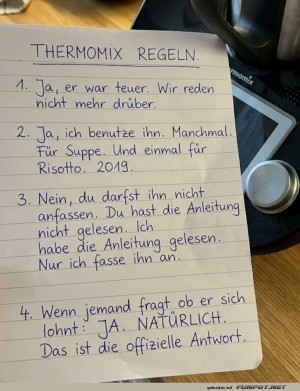 THERMOMIX REGELN.
1. Ja, er war teuer. Wir reden
nicht mehr drüber.
2. Ja, ich benutze ihn. Manchmal.
Für Suppe. Und einmal für
Risotto. 2019.
3. Nein, du darfst ihn nicht
anfassen. Du hast die Anleitung
nicht gelesen. Ich
habe die Anleitung gelesen.
Nur ich fasse ihn an.
4. Wenn jemand fragt ob er sich
lohnt: JA. NATÜRLICH.
Das ist die offizielle Antwort.
thermomix
gefunden auf FUNPOT.NET